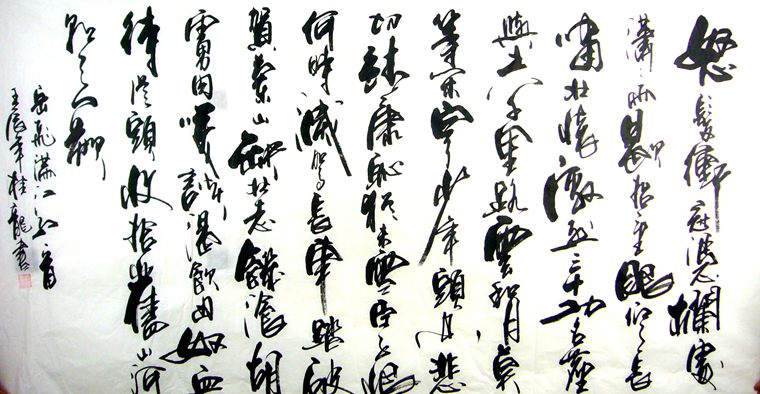 怒髮衝冠憑欄處
瀟瀟雨歇抬望眼仰天長
嘯壯懷激烈三十功名塵
與土八千里路雲和月莫
等閑白了少年頭空悲
切靖康恥猶未雪臣子恨
何時滅駕長車踏破
賀蘭山缺壯志饑餐胡
虜肉笑談渴飲匈奴血
待從頭收拾舊山河
朝天闕
岳飛滿江紅一首
壬辰年桂龍書